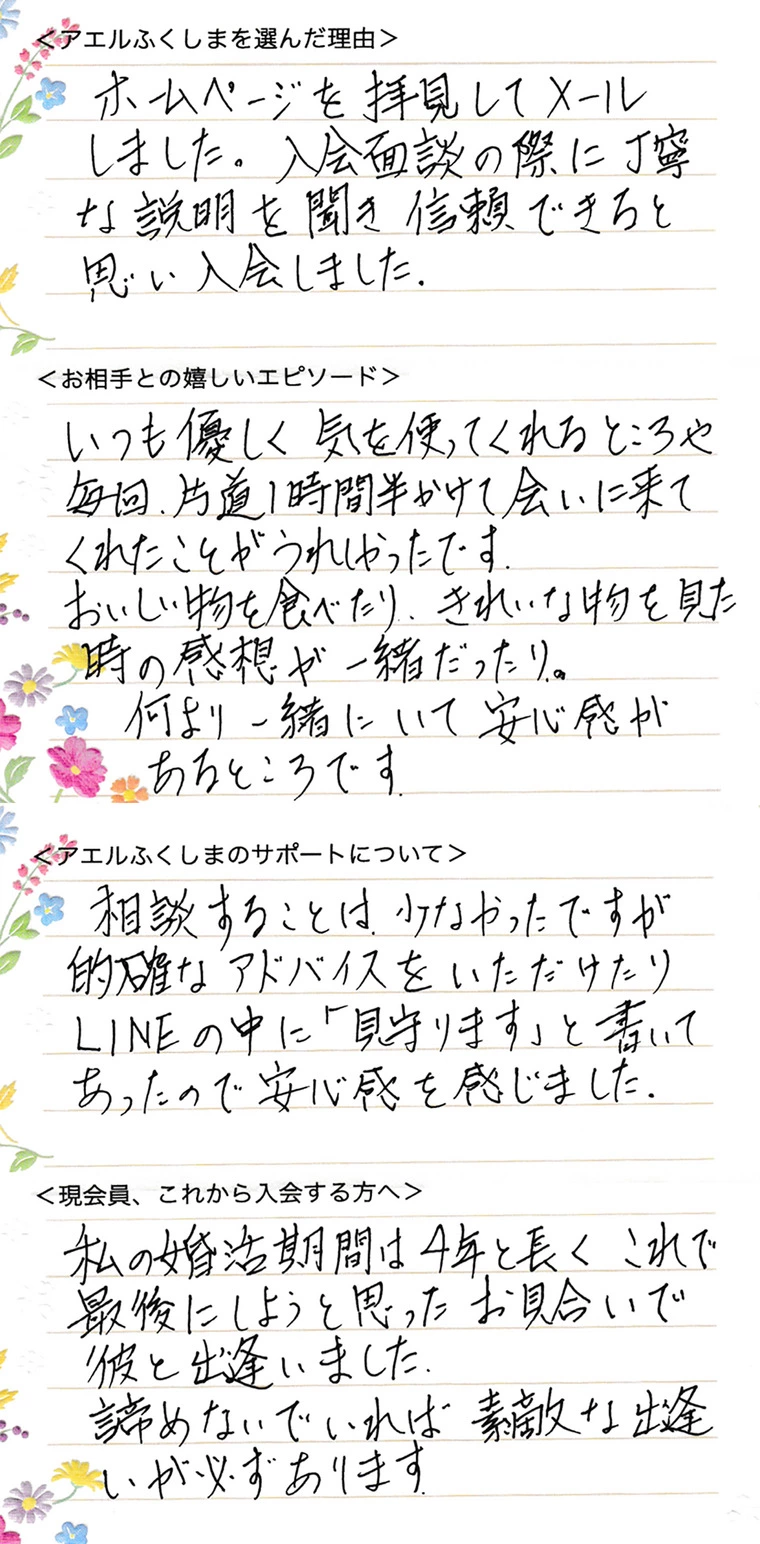 ＜アエルふくしまを選んだ理由＞
ホームページを拝見してメール
しました。入会面談の際に丁寧
な説明を聞き信頼できると
思い入会しました.
＜お相手との嬉しいエピソード＞
いつも優しく気を使ってくれるところや
毎回、片道1時間半かけて会いに来て
くれたことがうれしかったです.
おいしい物を食べたり、きれいな物を見た
時の感想が一緒だったり。
何より一緒にいて安心感が
あるところです.
＜アエルふくしまのサポートについて＞
相談することは少なかったですが
的確なアドバイスをいただけたり
LINEの中に「見守ります」と書いて
あったので安心感を感じました.
＜現会員、これから入会する方へ＞
私の婚活期間は4年と長くこれで
最後にしようと思ったお見合いで
彼と出逢いました.
諦めないでいれば素敵な出逢
いが必ずあります.